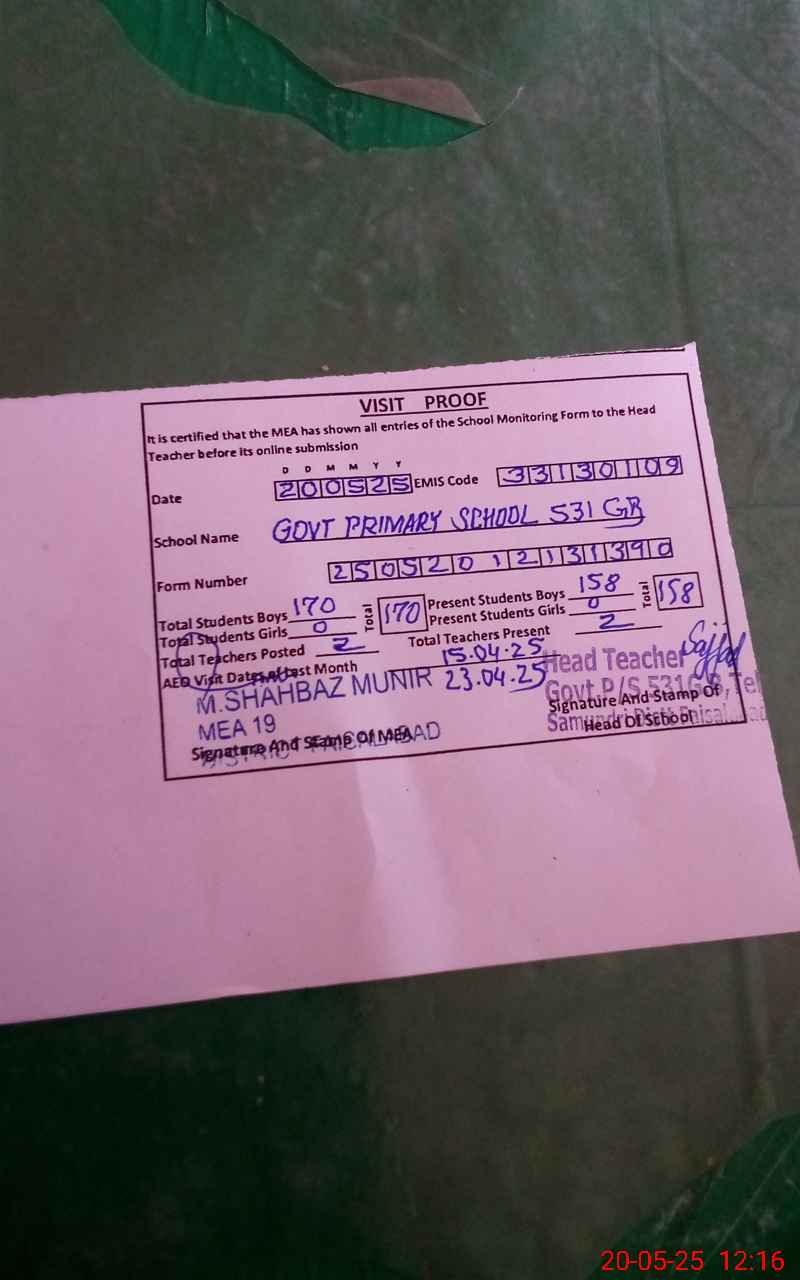 VISIT PROOF
It is certified that the MEA has shown all entries of the School Monitoring Form to the Head
Teacher before its online submission
D D M M Y Y
Date 200525 EMIS Code 33130109
School Name GOVT PRIMARY SCHOOL 531 GB
Form Number 25052012131390
Total Students Boys 170 Total 170 Present Students Boys 158 Total 158
Total Students Girls 0 Present Students Girls 0
Total Teachers Posted 2 Total Teachers Present 2
AEO Visit Dates of Last Month 15.04.25
23.04.25
M.SHAHBAZ MUNIR
MEA 19
DISTRICT FAISALABAD
Signature And Stamp Of MEA
Head Teacher
Govt P/S 531G.B, Teh
Samundri Distt Faisalabad
Signature And Stamp Of
Head Of School
20-05-25 12:16